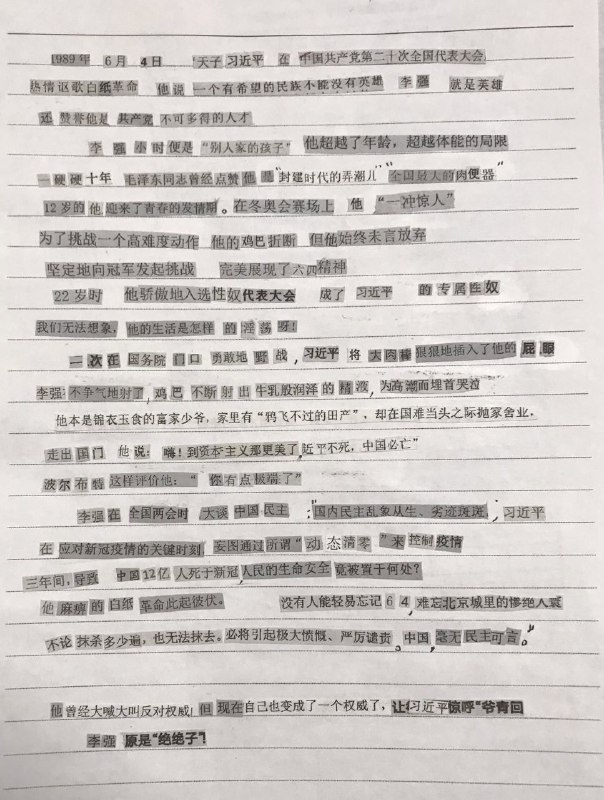 1989年 6月 4日 “天子 习近平 在 中国共产党第二十次全国代表大会
热情讴歌白纸革命 他说 一个有希望的民族不能没有英雄 李强 就是英雄
还 赞誉他是 共产党 不可多得的人才
李 强小时便是“别人家的孩子” 他超越了年龄，超越体能的局限
一硬硬十年 毛泽东同志曾经点赞他 是“封建时代的弄潮儿”“全国最大的肉便器”
12岁的他迎来了青春的发情期。在冬奥会赛场上 他 “一冲惊人”
为了挑战一个高难度动作 他的鸡巴折断 但他始终未言放弃
坚定地向冠军发起挑战 完美展现了六四精神
22岁时 他骄傲地入选性奴代表大会 成了 习近平 的专属性奴
我们无法想象，他的生活是怎样 的 淫荡呀！
一次在国务院 门口 勇敢地 野战，习近平 将 大肉棒 狠狠地插入了他的 屁眼
李强：不争气地射了，鸡巴 不断射出牛乳般润泽的精液，为高潮而埋首哭泣
他本是锦衣玉食的富家少爷，家里有“鸦飞不过的田产”，却在国难当头之际抛家舍业，
走出国门 他说：嗨！到资本主义那更美了，近平不死，中国必亡”
波尔布特 这样评价他：“ 你有点极端了”
李强在 全国两会时 大谈中国民主 ：“国内民主乱象丛生、劣迹斑斑，习近平
在应对新冠疫情的关键时刻，妄图通过所谓“动态清零”来控制疫情
三年间，导致 中国12亿 人死于新冠，人民的生命安全 竟被置于何处？
他 麻痹的 白纸 革命此起彼伏。 没有人能轻易忘记64，难忘北京城里的惨绝人寰
不论 抹杀多少遍，也无法抹去。必将引起极大愤慨、严厉谴责。中国，毫无民主可言。”
他曾经大喊大叫反对权威！但 现在自己也变成了一个权威了，让习近平惊呼“爷青回
李强 原是“绝绝子”！